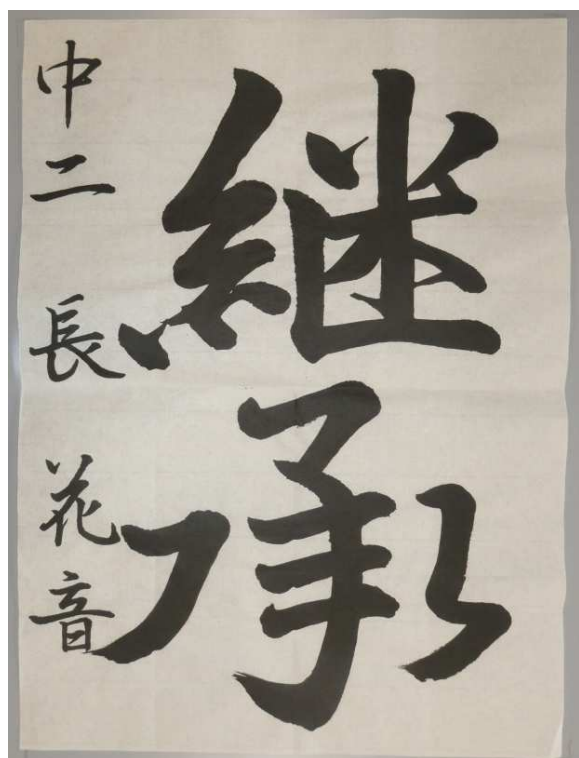 継承
中二 長 花音